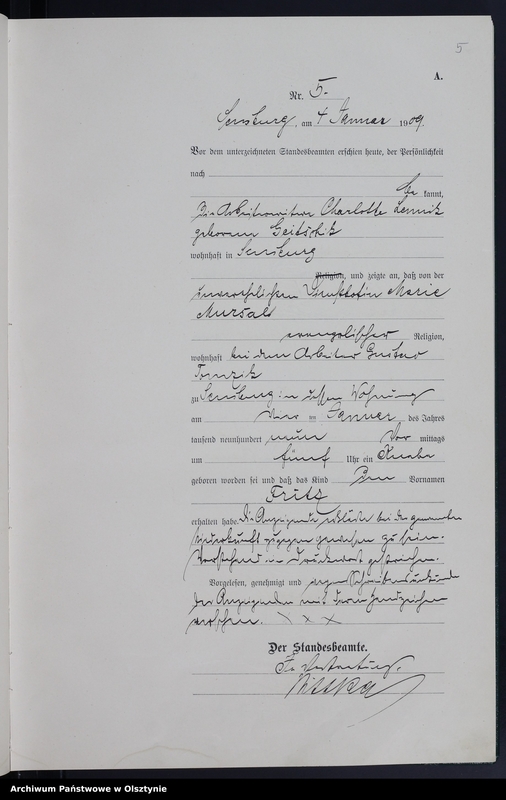 5
A.
Nr. 5.
Sensburg, am 4 Januar 1909.
Vor dem unterzeichneten Standesbeamten erschien heute, der Persönlichkeit
nach
be kannt,
die Arbeiterwitwe Charlotte
geborene
wohnhaft in Sensburg
Religion, und zeigte an, daß von der
unverehelichten Marie
Mursal
evangelischer Religion,
wohnhaft bei dem Arbeiter Gustav
zu Sensburg in dessen Wohnung
am vier ten Januar des Jahres
tausend neunhundert neun Vor mittags
um fünf Uhr ein Knabe
geboren worden sei und daß das Kind den Vornamen
Fritz
erhalten habe. Die Anzeigende erklärte bei der genannten
Niederkunft zugegen gewesen zu sein.
Vorstehend ein Druckwort gestrichen.
Vorgelesen, genehmigt und wegen Schreibensunkunde
der Anzeigenden mit deren Handzeichen
versehen. \ x x x
Der Standesbeamte.
In Vertretung.